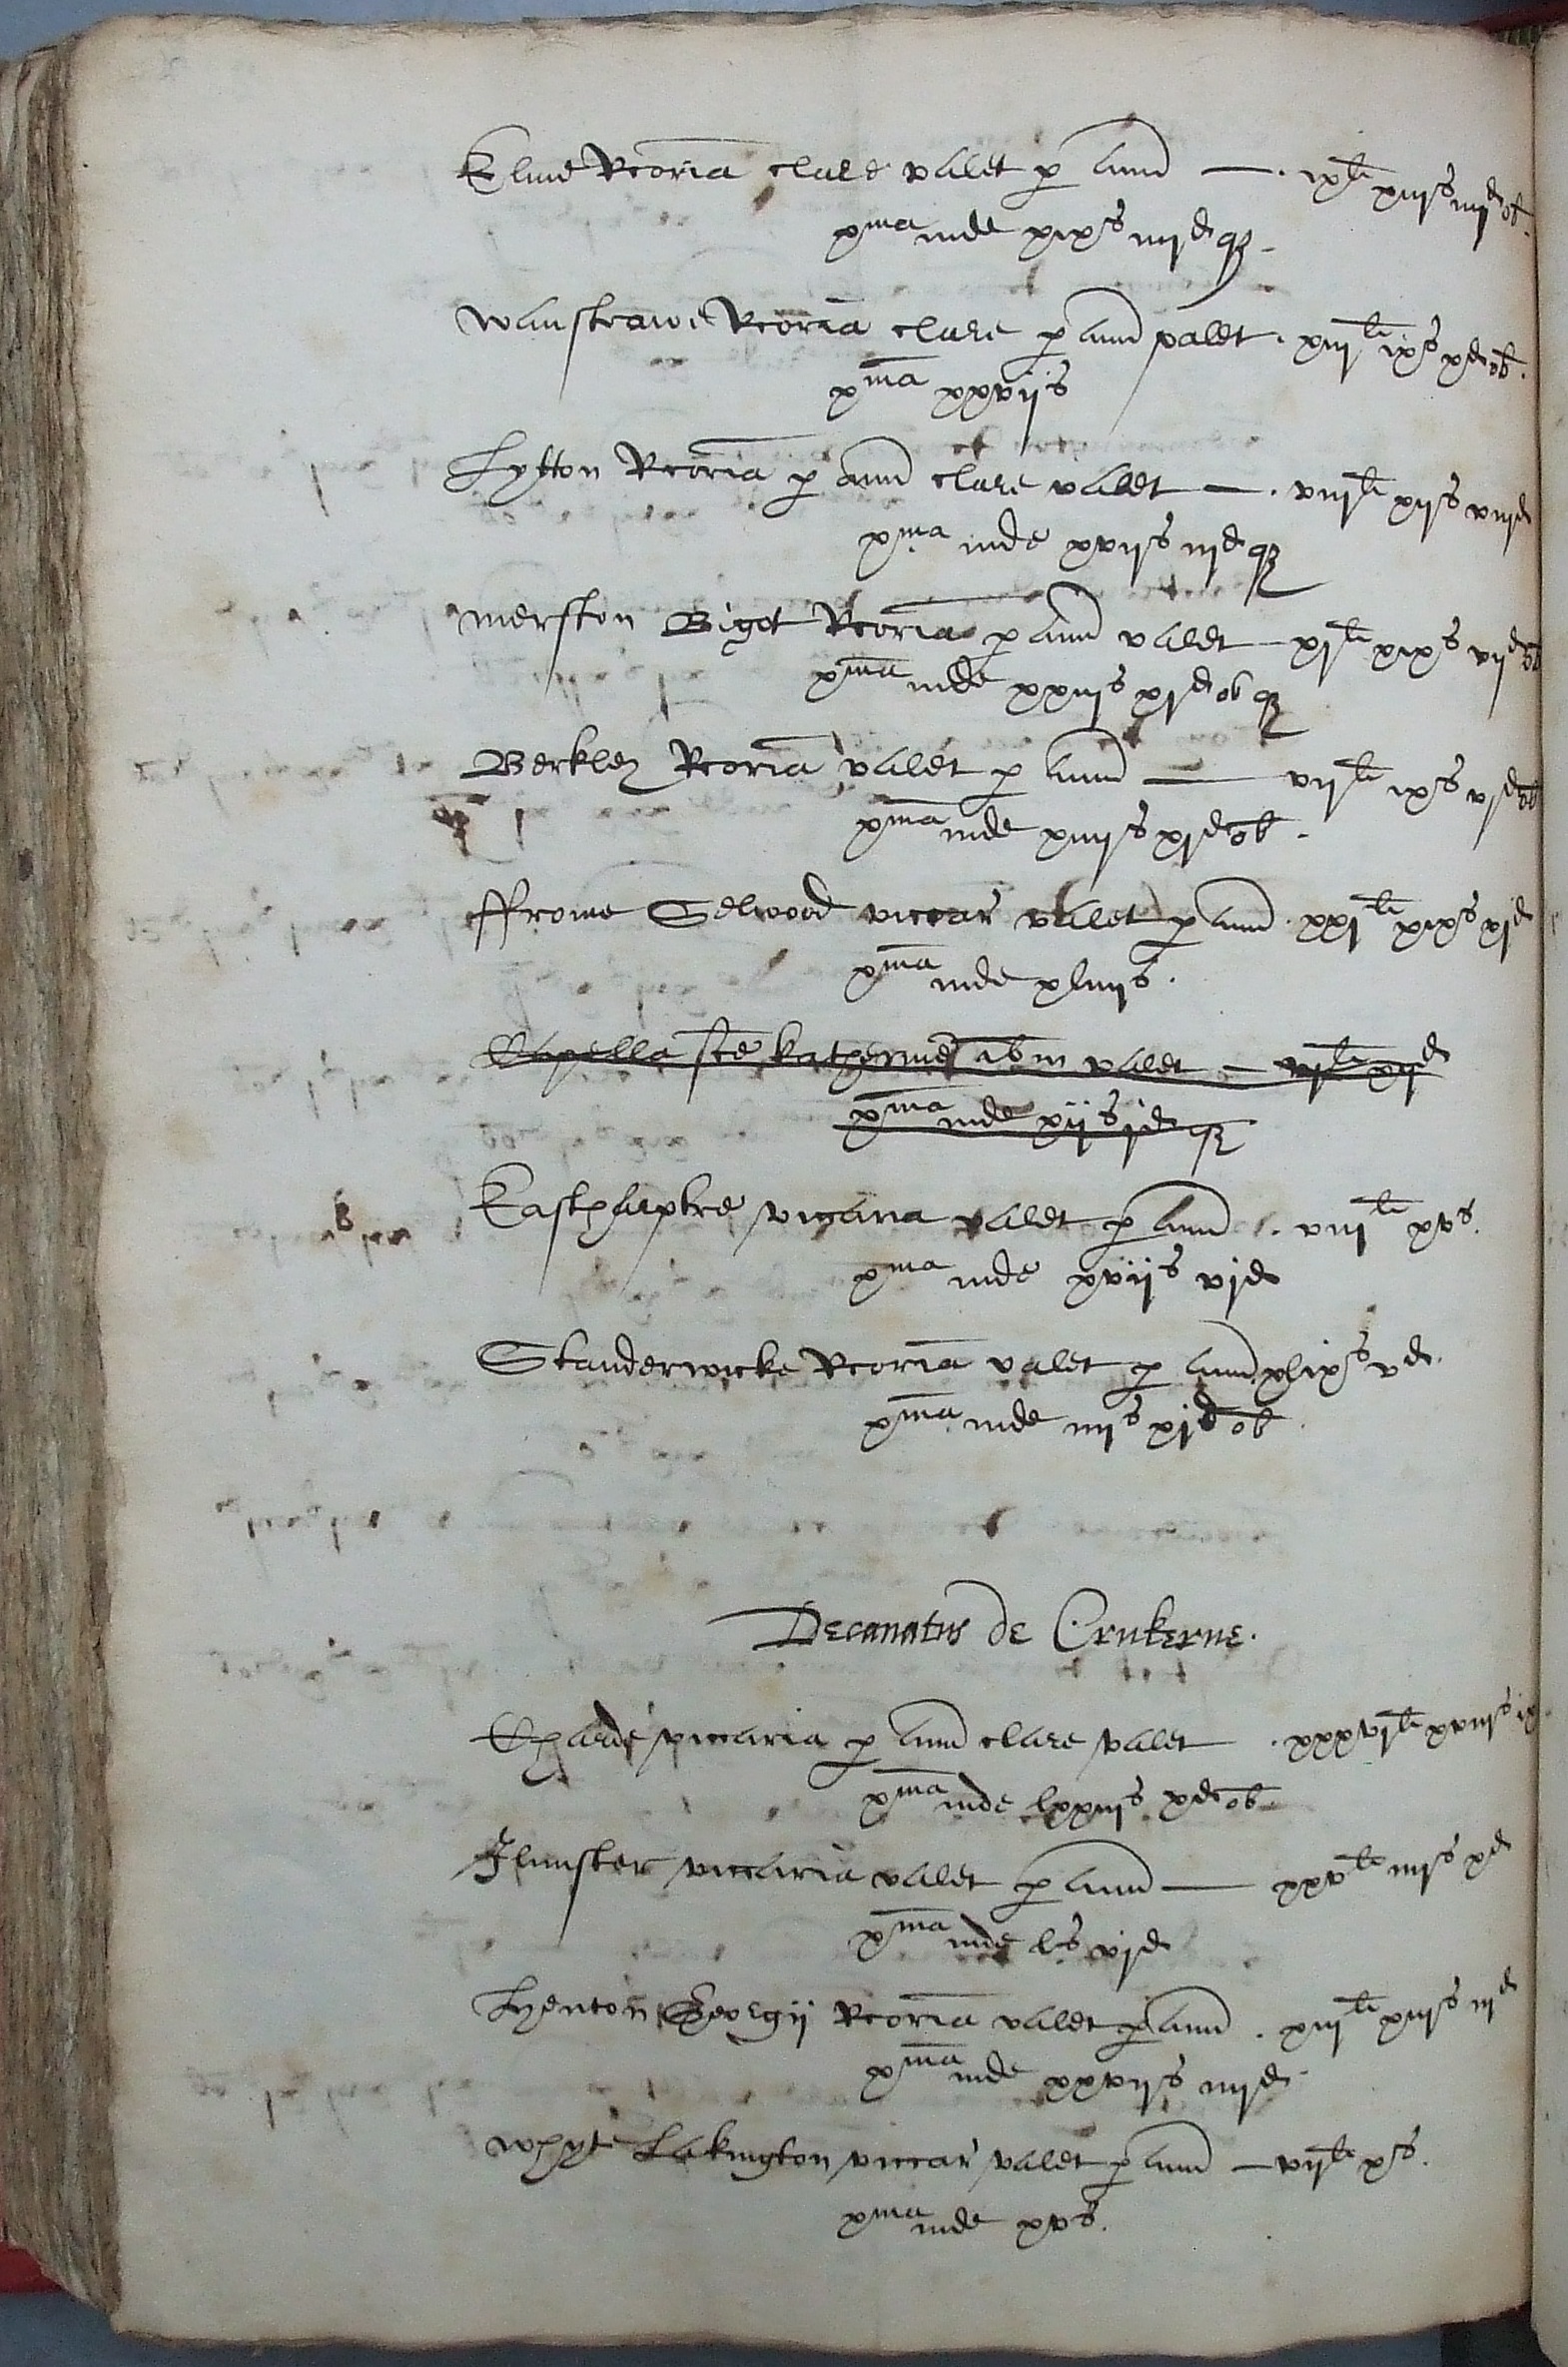 Elme Rcoria clare valet p ann —. ixli xiijs iiijd ob.
xma inde xixs iiijd q
Wanstrawe Rcoria clare p ann valet. xiijli ixs xd ob.
xma xxvijs
Lytton Rcoria p ann clare valet —. viijli xijs viijd
xma inde xvijs iijd q
Merston Bigot Rcoria p ann valet — xjli xixs vijd ob
xma inde xxiijs xjd ob q
Berkley Rcoria valet p ann — vijli ixs vjd ob
xma inde xiiijs xjd ob.
ffrome Selwood viccar valet p ann. xxjli xixs xjd
xma inde xliiijs.
Capella sce Katherine ibm valet — vjli xijd
xma inde xijs jd q
Estharptre vicaria valet p ann. viijli xvs.
xma inde xvijs vjd
Standerwicke Rcoria valet p ann xlixs vd.
xma inde iiijs xjd ob.
Decanatus de Crukerne.
Charde viccaria p ann clare valet. xxxvjli xviijs ixd.
xma inde lxxiijs xd ob
Ilmister viccaria valet p ann — xxvli iiijs xd
xma inde ls vjd
Hyenton Georgij Rcoria valet p ann. xiijli xiijs iijd
xma inde xxvijs iiijd.
Whyte Lakington viccar valet p ann — vijli xs.
xma inde xvs.